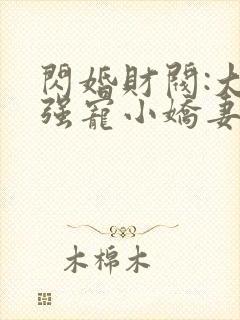 閃婚財閥:大
强寵小嬌妻
木棉木